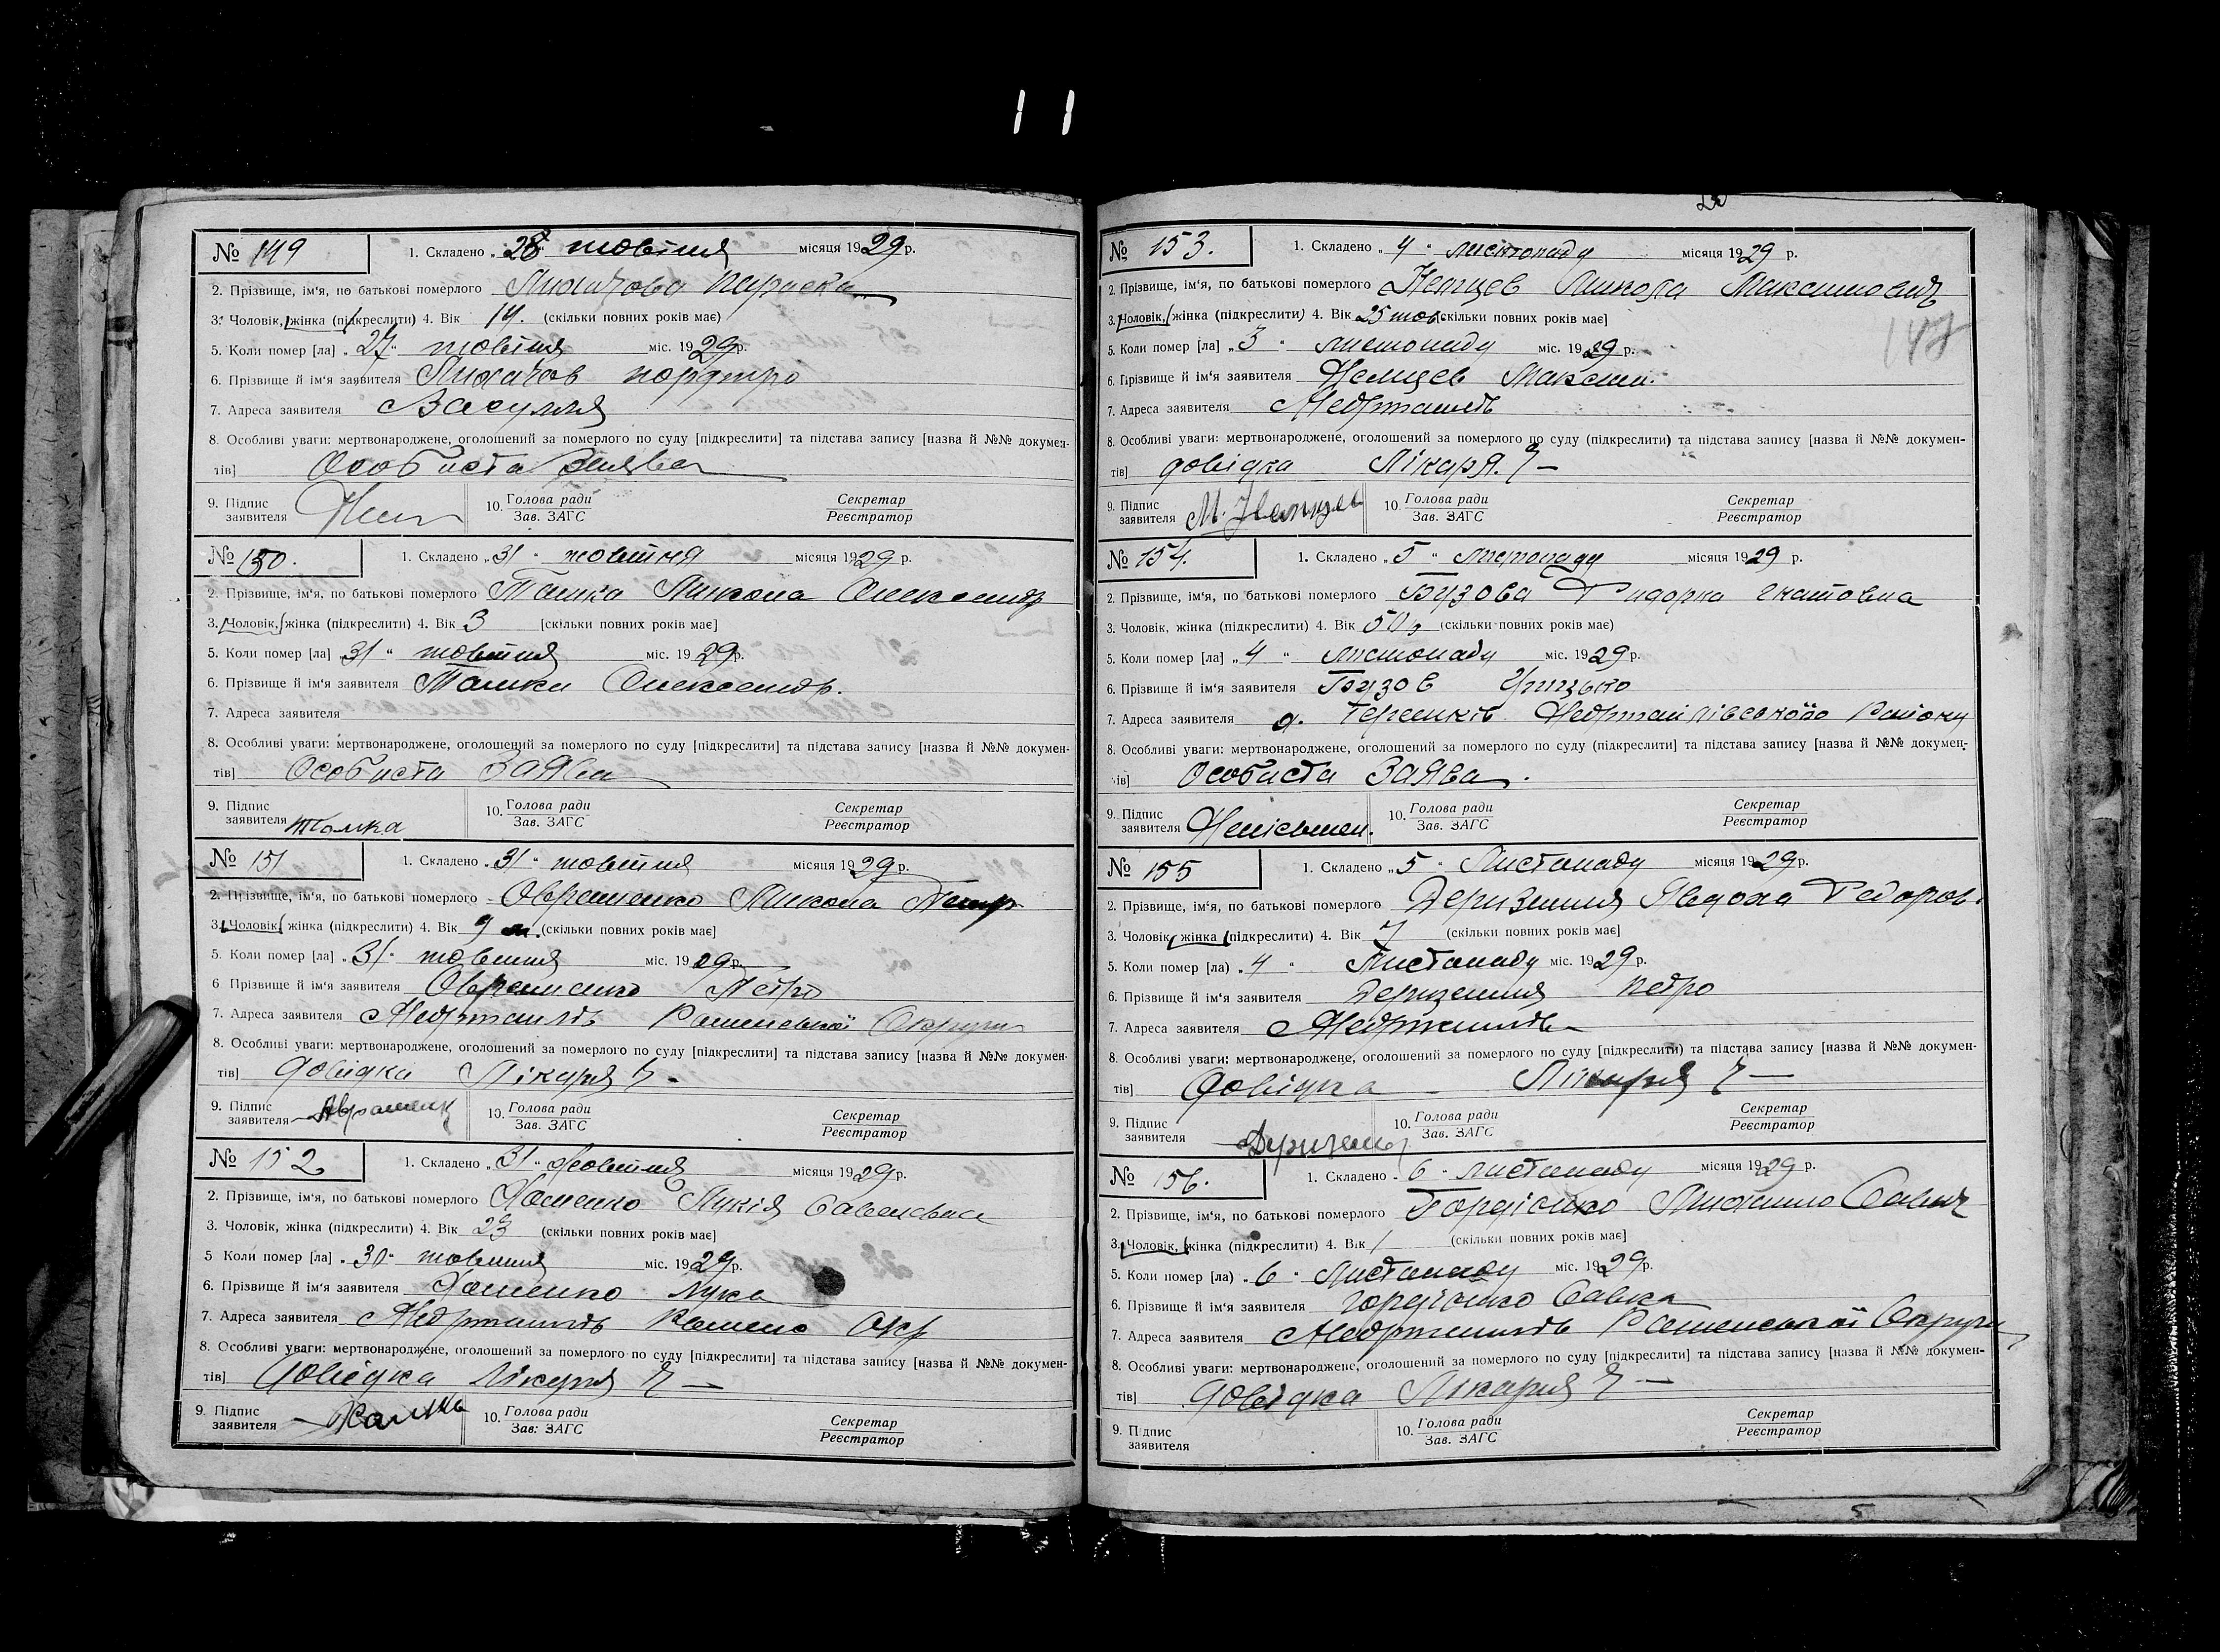 11
№ 149
1. Складено „ 28 “ жовтня місяця 1929 р.
2. Прізвище, ім‘я, по батькові померлого Лихачова Параска
3. Чоловік, жінка (підкреслити) 4. Вік 14. (скільки повних років має)
5. Коли помер [ла] „ 27 “ жовтня міс. 1929 р.
6. Прізвище й ім‘я заявителя Лихачов
7. Адреса заявителя Засулля
8. Особливі уваги: мертвонароджене, оголошений за померлого по суду [підкреслити] та підстава запису [назва й №№ докумен-
тів] Особиста заява
9. Підпис заявителя
10. Голова ради Зав. ЗАГС
Секретар Реєстратор
№ 150.
1. Складено „ 31 “ жовтня місяця 1929 р.
2. Прізвище, ім‘я, по батькові померлого Томка Микола Олександр
3. Чоловік, жінка (підкреслити) 4. Вік 3 [скільки повних років має]
5. Коли помер [ла] 31 “ жовтня міс. 1929 р.
6. Прізвище й ім‘я заявителя Томка Олександр.
7. Адреса заявителя
8. Особливі уваги: мертвонароджене, оголошений за померлого по суду [підкреслити] та підстава запису [назва й №№ докумен-
тів] Особиста Заява
9. Підпис заявителя Томка
10. Голова ради Зав. ЗАГС
Секретар Реєстратор
№ 151
1. Складено „ 31 “ жовтня місяця 1929 р.
2. Прізвище, ім‘я, по батькові померлого Овраменко Микола Петр
3. Чоловік, жінка (підкреслити) 4. Вік 9 м. (скільки повних років має]
5. Коли помер [ла] „ 31 “ жовтня міс. 1929 р.
6 Прізвище й ім‘я заявителя Овраменко Петро
7. Адреса заявителя Недригайлів Роменської Округи
8. Особливі уваги: мертвонароджене, оголошений за померлого по суду [підкреслити] та підстава запису [назва й №№ докумен-
тів] Довідка Лікаря
9. Підпис заявителя Авраменк
10. Голова ради Зав. ЗАГС
Секретар Реєстратор
№ 152
1. Складено „ 31 “ Жовтня місяця 1929 р.
2. Прізвище, ім‘я, по батькові померлого Хоменко Лукія
3. Чоловік, жінка (підкреслити) 4. Вік 23 (скільки повних років має]
5 Коли помер [ла] „ 30 “ жовтня міс. 1929 р.
6. Прізвище й ім‘я заявителя Хоменко Лука
7. Адреса заявителя Недригайлів Роменс Окр
8. Особливі уваги: мертвонароджене, оголошений за померлого по суду [підкреслити] та підстава запису [назва й №№ докумен-
тів] Довідка Лікаря
9. Підпис заявителя
10. Голова ради Зав: ЗАГС
Секретар Реєстратор
№ 153.
1. Складено „ 4 “ листопаду місяця 1929 р.
2. Прізвище, ім‘я, по батькові померлого Немцев Микола Максимович
3. Чоловік, жінка (підкреслити) 4. Вік 25 (скільки повних років має]
5. Коли помер [ла] „ 3 “ листопаду міс. 1929 р.
6. Прізвище й ім‘я заявителя Немцев Максим.
7. Адреса заявителя Недригайлів
8. Особливі уваги: мертвонароджене, оголошений за померлого по суду (підкреслити) та підстава запису [назва й №№ докумен-
тів] довідка Лікаря.
9. Підпис заявителя М. Немцев
10. Голова ради Зав. ЗАГС
Секретар Реєстратор
№ 154.
1. Складено „ 5 “ листопаду місяця 1929 р.
2. Прізвище, ім‘я, по батькові померлого Бузова Гнатовна
3. Чоловік, жінка (підкреслити) 4. Вік 50 (скільки повних років має)
5. Коли помер [ла] „ 4 “ листопаду міс. 1929 р.
6. Прізвище й ім‘я заявителя Бузов Грицько
7. Адреса заявителя Недригайлівського Району
8. Особливі уваги: мертвонароджене, оголошений за померлого по суду (підкреслити] та підстава запису [назва й №№ докумен-
тів] Особиста Заява.
9. Підпис заявителя Неписьмен.
10. Голова ради Зав. ЗАГС
Секретар Реєстратор
№ 155
1. Складено „ 5 “ Листопаду місяця 1929 р.
2. Прізвище, ім‘я, по батькові померлого Деризємля Явдоха Федоров.
3. Чоловік, жінка (підкреслити) 4. Вік 7 (скільки повних років має]
5. Коли помер [ла) „ 4 “ Листопаду міс. 1929 р.
6. Прізвище й ім‘я заявителя Деризємля Петро
7. Адреса заявителя Недригайлів
8. Особливі уваги: мертвонароджене, оголошений за померлого по суду [підкреслити) та підстава запису [назва й №№ докумен-
тів] Довідка Лікаря
9. Підпис заявителя
10. Голова ради Зав. ЗАГС
Секретар Реєстратор
№ 156.
1. Складено „ 6 “ листопаду місяця 1929 р.
2. Прізвище, ім‘я, по батькові померлого Гордієнко Михайло Савич
3. Чоловік, жінка (підкреслити) 4. Вік 1 (скільки повних років має]
5. Коли помер [ла) „ 6 “ Листопаду міс. 1929 р.
6. Прізвище й ім‘я заявителя Гордієнко Савка
7. Адреса заявителя Недригайлів Роменської Округи
8. Особливі уваги: мертвонароджене, оголошений за померлого по суду [підкреслити] та підстава запису [назва й №№ докумен-
тів] Довідка Лікаря
9. Підпис заявителя
10. Голова ради Зав. ЗАГС
Секретар Реєстратор